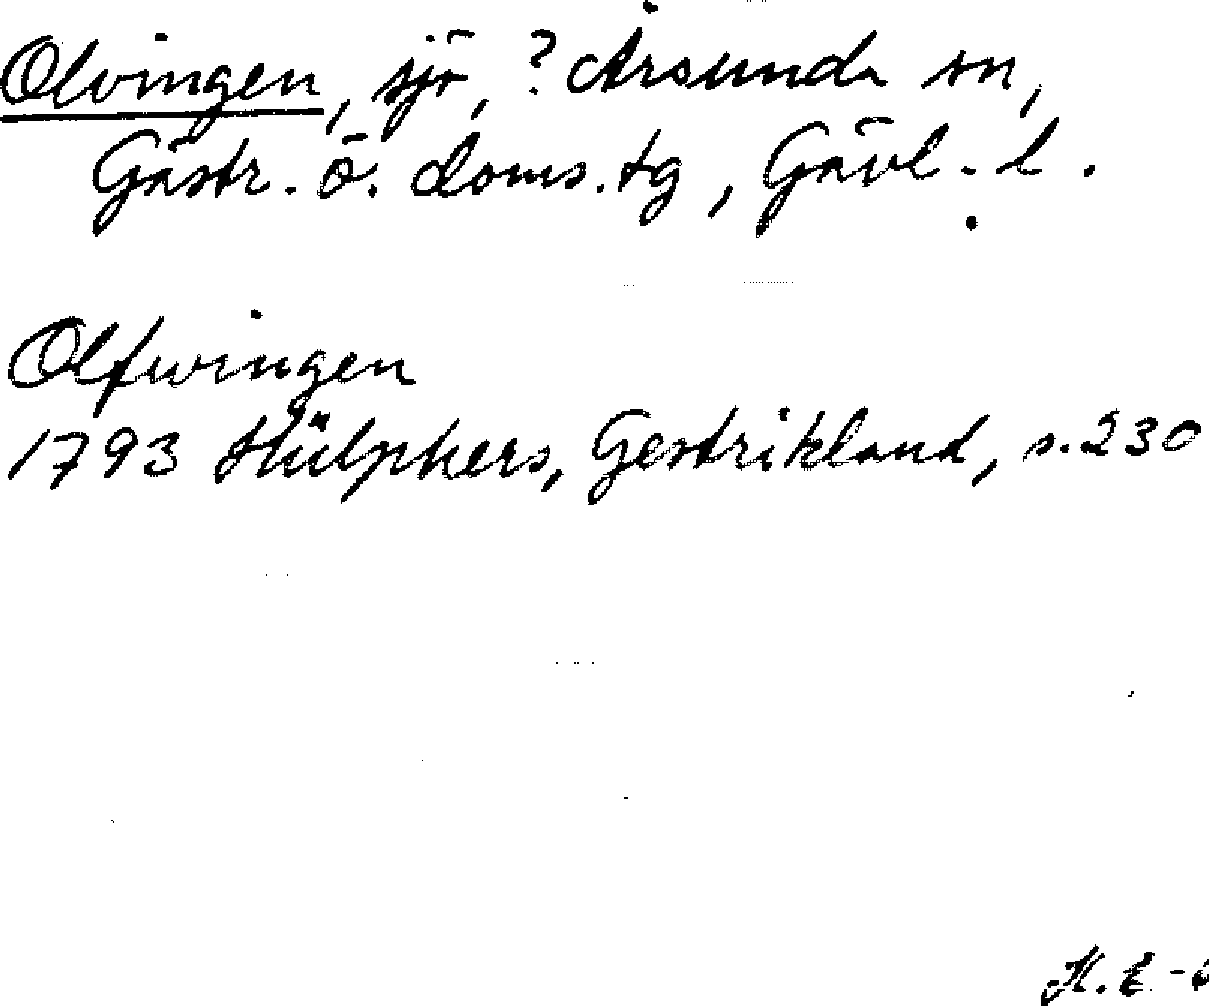 Olvingen, sjö, ? Årsunda sn,
Gästr. ö. doms.tg, Gävl. l.
Olfwingen
1793 Hülphers, Gestrikland, s. 230
H. E.